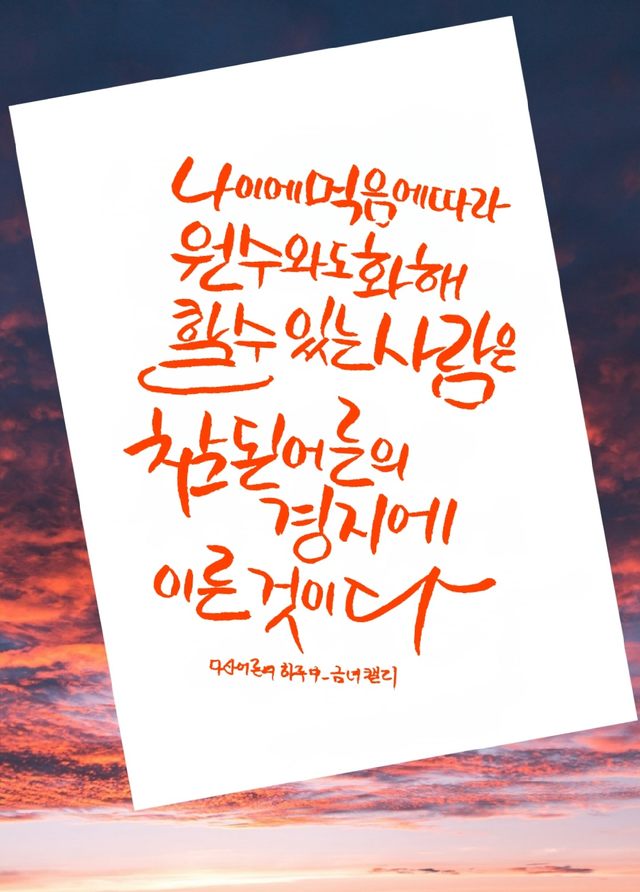 나이에먹음에따라
원수와도화해
할수있는사람은
참된어른의
경지에
이른것이다
다산어른의 하루 中 - 금녀캘리